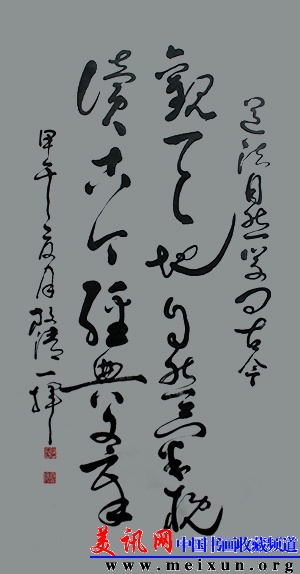 道法自然学问古今
觀天地自然
讀古今經典文章
甲午夏月
美讯网 中国书画收藏频道
www.meixun.org